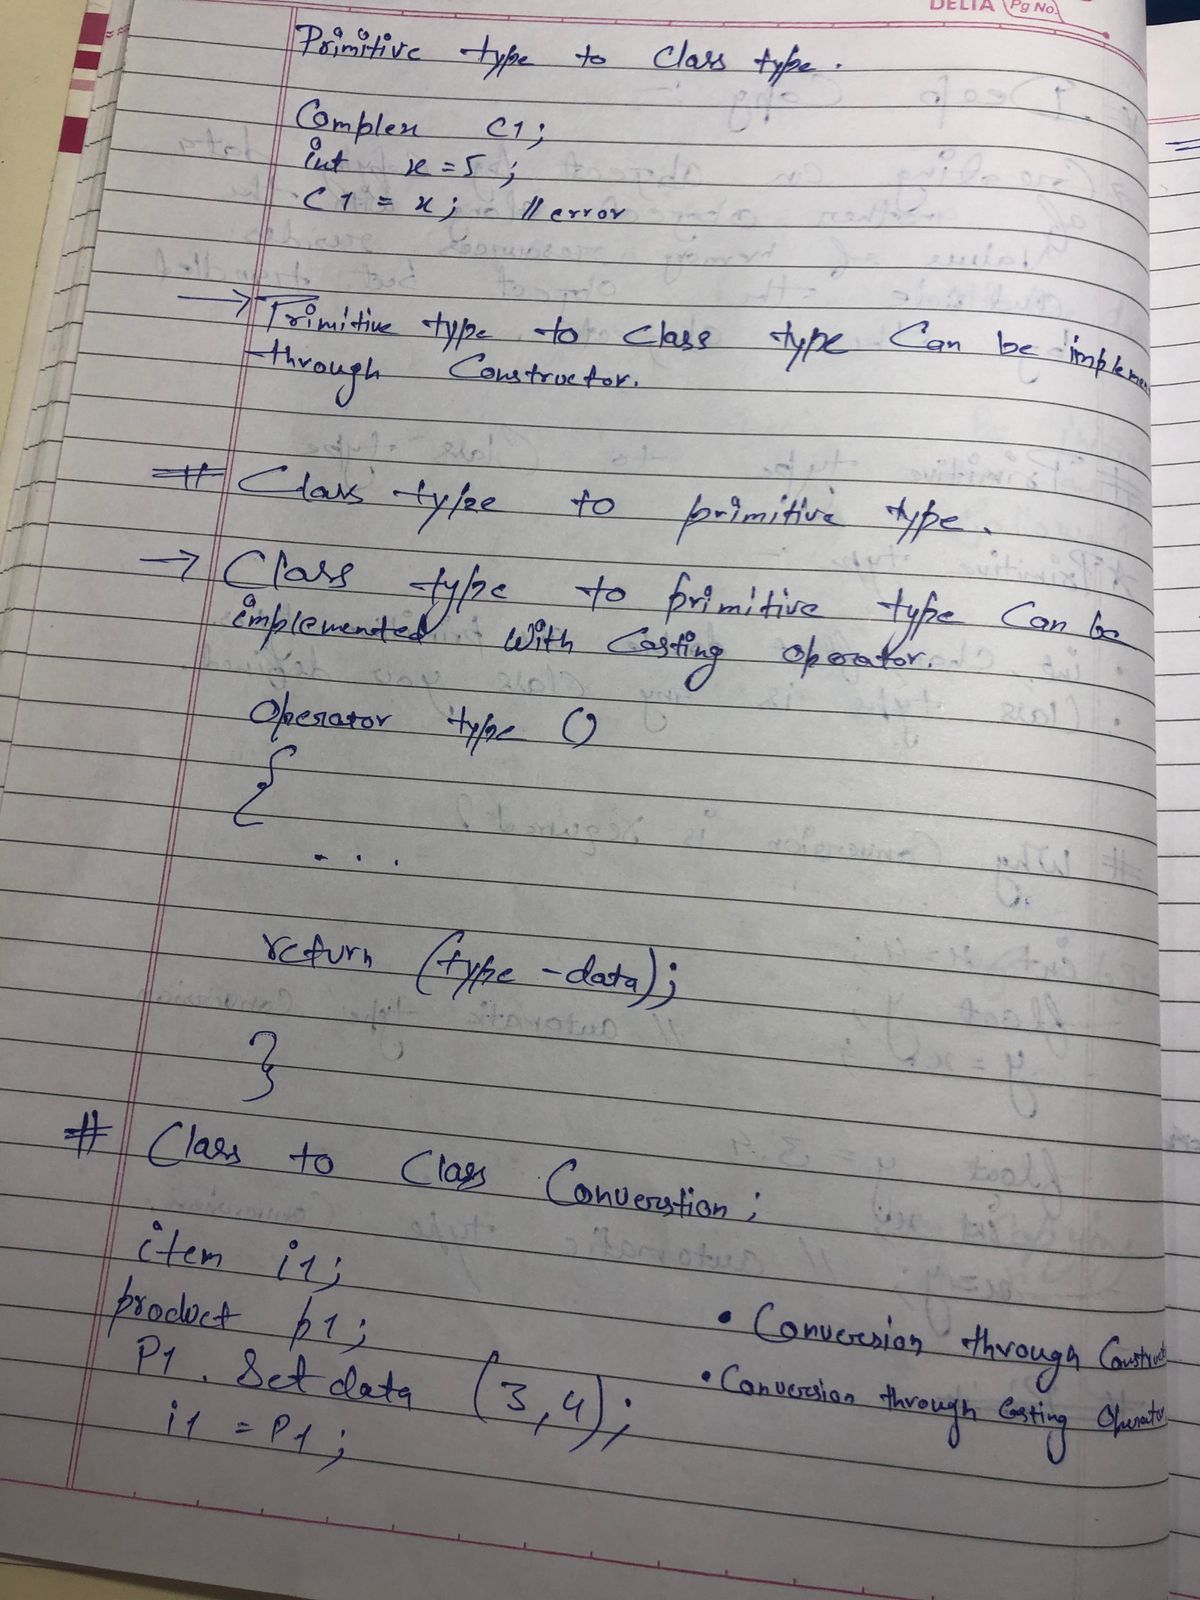 DELTA Pg No.
Primitive type to Class type.
Complex C1;
int x = 5;
C1 = x; // error
→ Primitive type to Class type Can be implemen
through Constructor.
# Class type to primitive type.
→ Class type to primitive type Can be
implemented With Casting Operator.
Operator type ()
{
...
return (type - data);
}
# Class to Class Converstion;
item i1;
product p1;
P1. Set data (3,4);
i1 = P1;
• Conversion through Construct
• Conversion through Casting Operator